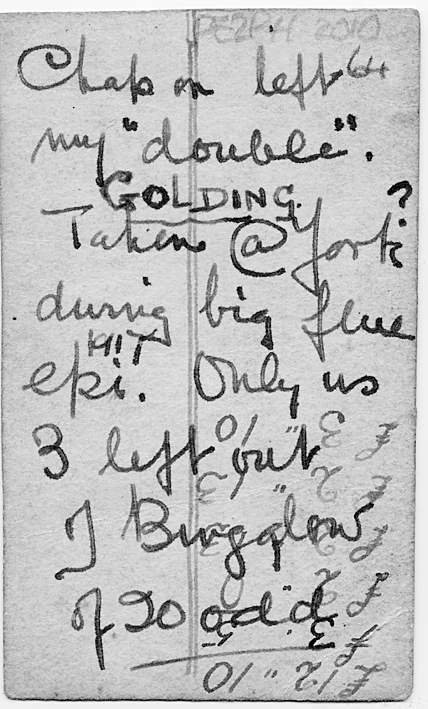 PE2PH 2010
Chap on left 64
my "double".
GOLDING
Taken @ York ?
during big flue
1917
epi. Only us
3 left out
of Bungalow
of 20 odd
£ 3 " 10
£ 12 " 10